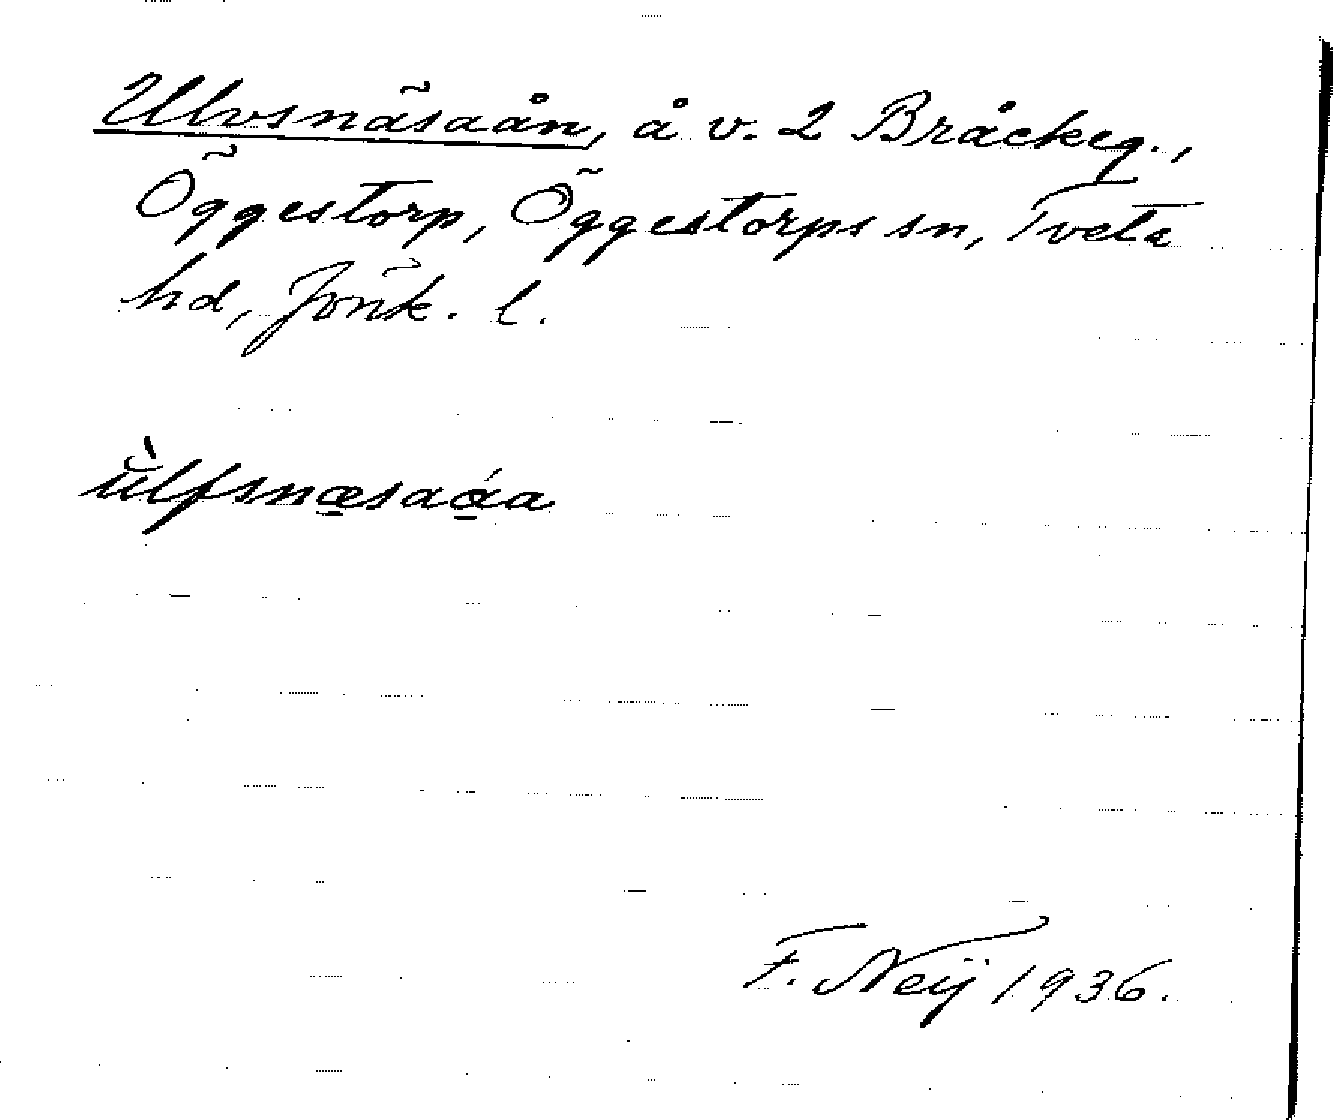 Ulvsnäsaån, å v. 2 Bråckeg.,
Öggestorp, Öggestorps sn, Tveta
hd, Jönk. l.
ùlfsnæ̱saá̱a
F. Neij 1936.